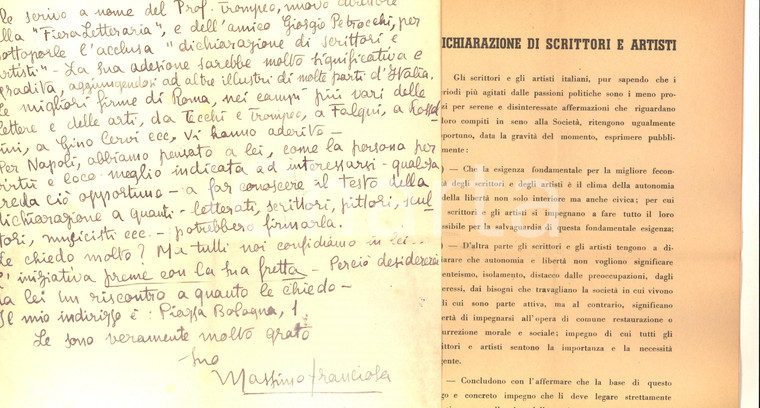 le scrivo a nome del Prof. Trompeo, nuovo direttore
lla "Fiera Letteraria", e dell'amico Giorgio Petrocchi, per
ottoporle l'acclusa "dichiarazione di scrittori e
rtisti" - La sua adesione sarebbe molto significativa e
gradita, aggiungendosi ad altre illustri di molte parti d'Italia.
Le migliori firme di Roma, nei campi più vari delle
lettere e delle arti, da Tecchi e Trompeo, a Falqui, a Rossel
ini, a Gino Cervi ecc, vi hanno aderito -
Per Napoli, abbiamo pensato a lei, come la persona per
virtù e loco meglio indicata ad interessarsi - qualora
creda ciò opportuno - a far conoscere il testo della
dichiarazione a quanti - letterati, scrittori, pittori, scul
tori, musicisti ecc. - potrebbero firmarla.
Le chiedo molto? Ma tutti noi confidiamo in lei...
L'iniziativa preme con la sua fretta - Perciò desidererei
da lei un riscontro a quanto le chiedo -
Il mio indirizzo è: Piazza Bologna, 1
Le sono veramente molto grato
suo
Massimo Franciosa
ICHIARAZIONE DI SCRITTORI E ARTISTI
Gli scrittori e gli artisti italiani, pur sapendo che i
riodi più agitati dalle passioni politiche sono i meno pro-
izi per serene e disinteressate affermazioni che riguardano
loro compiti in seno alla Società, ritengono ugualmente
pportuno, data la gravità del momento, esprimere pubbli-
mente:
) — Che la esigenza fondamentale per la migliore fecon-
tà degli scrittori e degli artisti è il clima della autonomia
della libertà non solo interiore ma anche civica; per cui
scrittori e gli artisti si impegnano a fare tutto il loro
ssibile per la salvaguardia di questa fondamentale esigenza;
) — D'altra parte gli scrittori e gli artisti tengono a di-
arare che autonomia e libertà non vogliono significare
enteismo, isolamento, distacco dalle preoccupazioni, dagli
eressi, dai bisogni che travagliano la società in cui vivono
di cui sono parte attiva, ma al contrario, significano
ertà di impegnarsi all'opera di comune restaurazione o
surrezione morale e sociale; impegno di cui tutti gli
rittori e artisti sentono la importanza e la necessità
gente.
— Concludono con l'affermare che la base di questo
go e concreto impegno che li deve legare strettamente